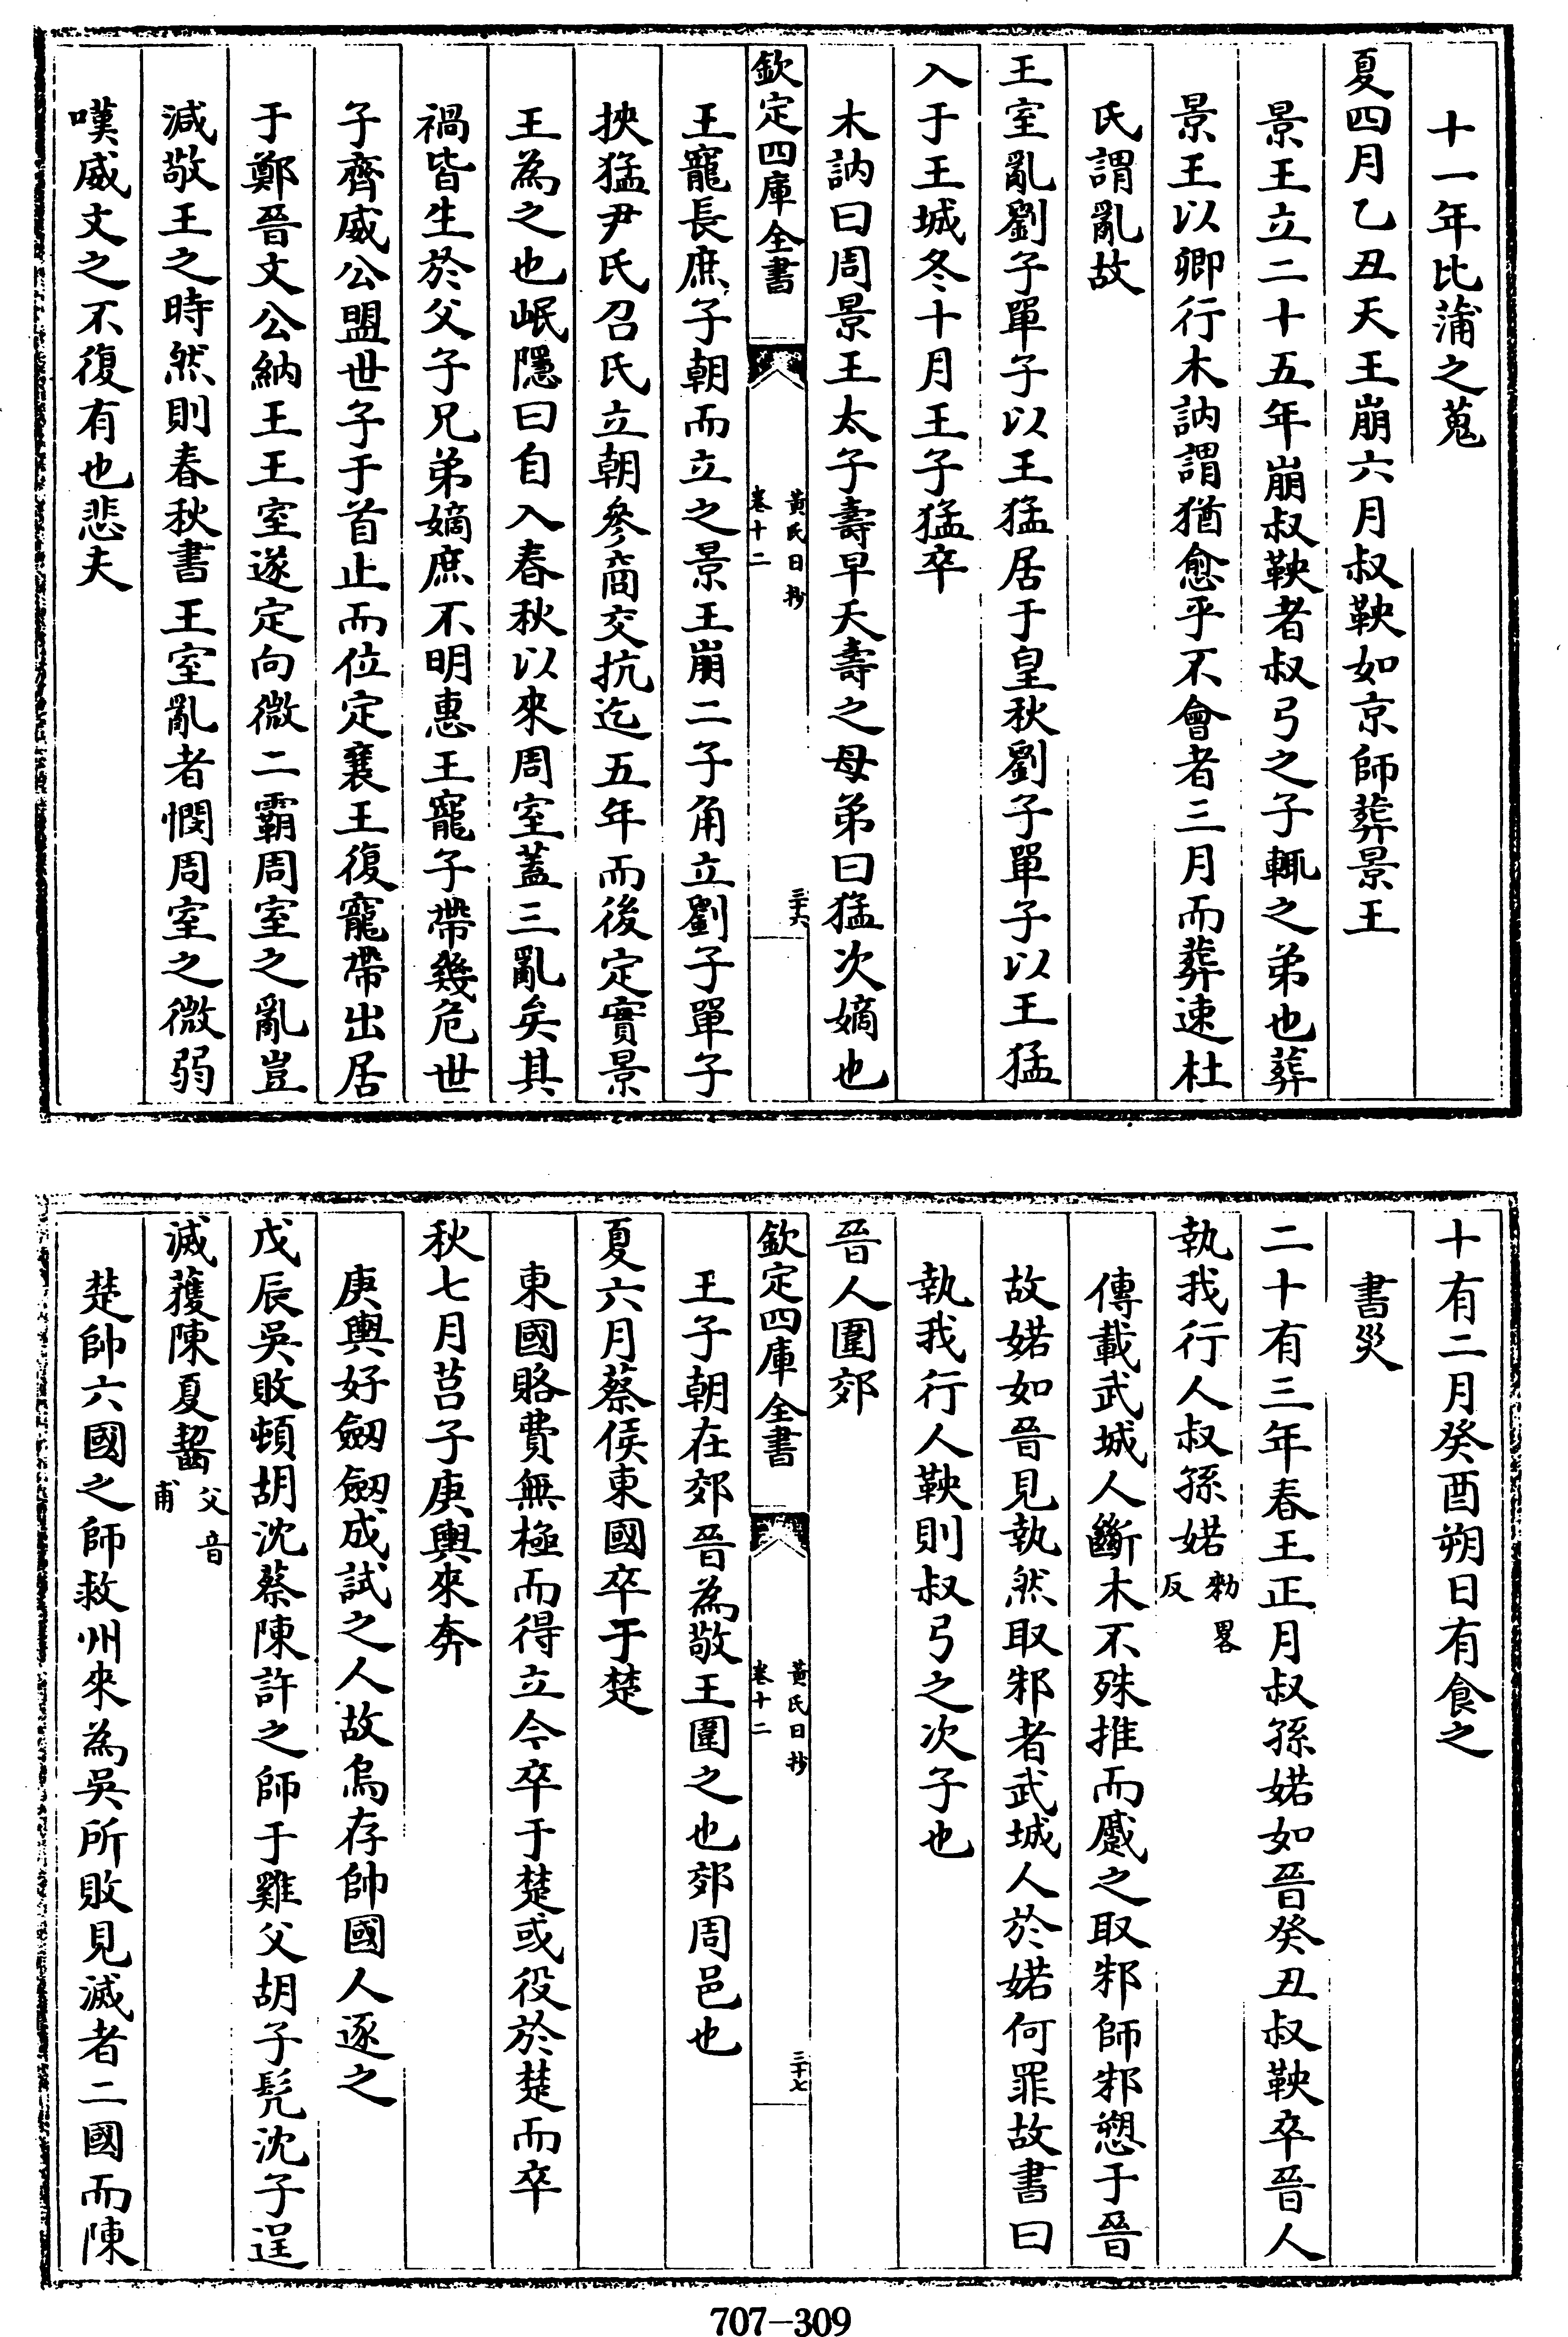 十一年比蒲之蒐
夏四月乙丑天王崩六月叔鞅如京師葬景王
景王立二十五年崩叔鞅者叔弓之子輒之弟也葬
景王以卿行木訥謂猶愈乎不會者三月而葬速杜
氏謂亂故
王室亂劉子單子以王猛居于皇秋劉子單子以王猛
入于王城冬十月王子猛卒
木訥曰周景王太子壽早夭壽之母弟曰猛次嫡也
欽定四庫全書
黃氏日抄
卷十二
三十六
王寵長庶子朝而立之景王崩二子角立劉子單子
挾猛尹氏召氏立朝參商交抗迄五年而後定實景
王為之也岷隱曰自入春秋以來周室蓋三亂矣其
禍皆生於父子兄弟嫡庶不明惠王寵子帶幾危世
子齊威公盟世子于首止而位定襄王復寵帶出居
于鄭晉文公納王王室遂定向微二霸周室之亂豈
減敬王之時然則春秋書王室亂者憫周室之微弱
嘆威文之不復有也悲夫
十有二月癸酉朔日有食之
書災
二十有三年春王正月叔孫婼如晉癸丑叔鞅卒晉人
執我行人叔孫婼勑畧反
傳載武城人斷木不殊推而蹙之取邾師邾愬于晉
故婼如晉見執然取邾者武城人於婼何罪故書曰
執我行人鞅則叔弓之次子也
晉人圍郊
欽定四庫全書
黃氏日抄
卷十二
三十七
王子朝在郊晉為敬王圍之也郊周邑也
夏六月蔡侯東國卒于楚
東國賂費無極而得立今卒于楚或役於楚而卒
秋七月莒子庚輿來奔
庚輿好劔劔成試之人故烏存帥國人逐之
戊辰吳敗頓胡沈蔡陳許之師于雞父胡子髠沈子逞
滅獲陳夏齧父音甫
楚帥六國之師救州來為吳所敗見滅者二國而陳
707-309